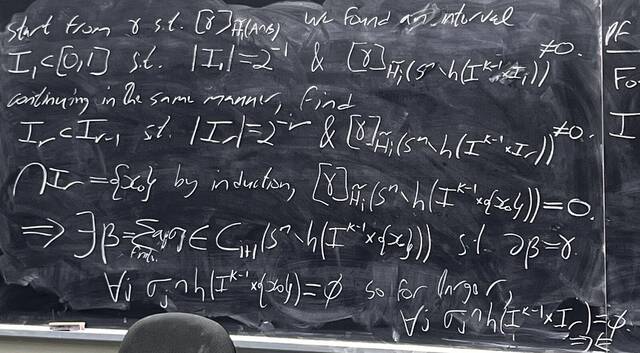 start from γ s.t. [γ]_{H̃_i(Ans)} we found an interval
I_1 ⊂ [0,1] s.t. |I_1| = 2^{-1} & [γ]_{H̃_i(S^n∖h(I^{k-1}×I_1))} ≠ 0.
continuing in the same manner, find
I_r ⊂ I_{r-1} s.t. |I_r| = 2^{-r} & [γ]_{H̃_i(S^n∖h(I^{k-1}×I_r))} ≠ 0.
∩I_r = {x_0} by induction, [γ]_{H̃_i(S^n∖h(I^{k-1}×{x_0}))} = 0.
⇒ ∃β = Σ a_j σ_j ∈ C_{i+1}(S^n∖h(I^{k-1}×{x_0})) s.t. ∂β = γ.
∀j σ_j ∩ h(I^{k-1}×{x_0}) = ∅ so for large r,
∀j σ_j ∩ h(I^{k-1}×I_r) = ∅.
⇒⇐
pf
Fo
I